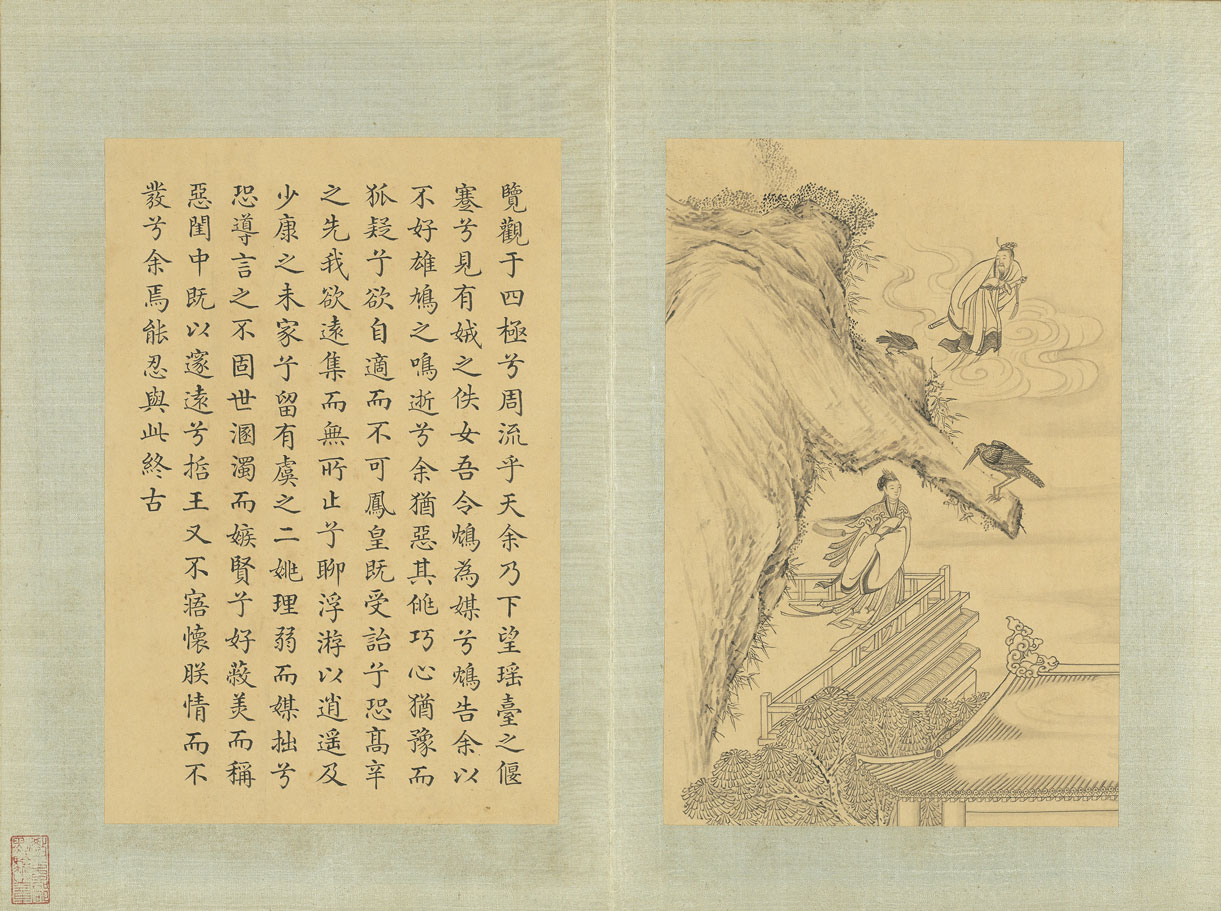 覽觀于四極兮周流乎天余乃下望瑶臺之偃
蹇兮見有娀之佚女吾令鴆為媒兮鴆告余以
不好雄鳩之鳴逝兮余猶惡其佻巧心猶豫而
狐疑兮欲自適而不可鳳皇既受詒兮恐髙辛
之先我欲遠集而無所止兮聊浮游以逍遥及
少康之未家兮留有虞之二姚理弱而媒拙兮
恐導言之不固世溷濁而嫉賢兮好蔽美而稱
惡閨中既以邃逺兮悊王又不寤懷朕情而不
發兮余焉能忍與此終古